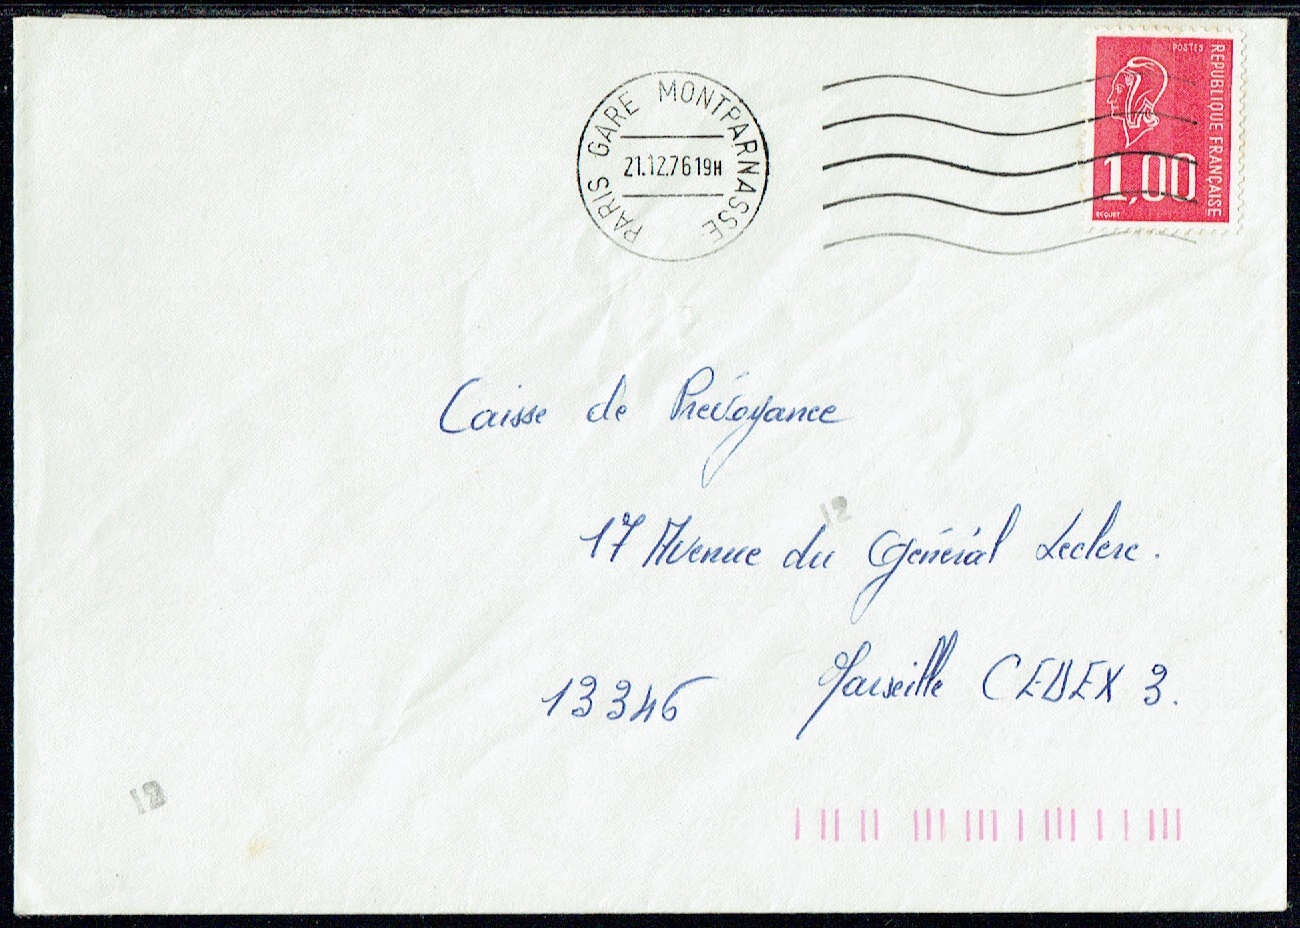 PARIS GARE MONTPARNASSE
21.12.76 19H
POSTES
REPUBLIQUE FRANÇAISE
1,00
BEQUET
Caisse de Prévoyance
12
17 Avenue du Général Leclerc.
13346 Marseille CEDEX 3.
12